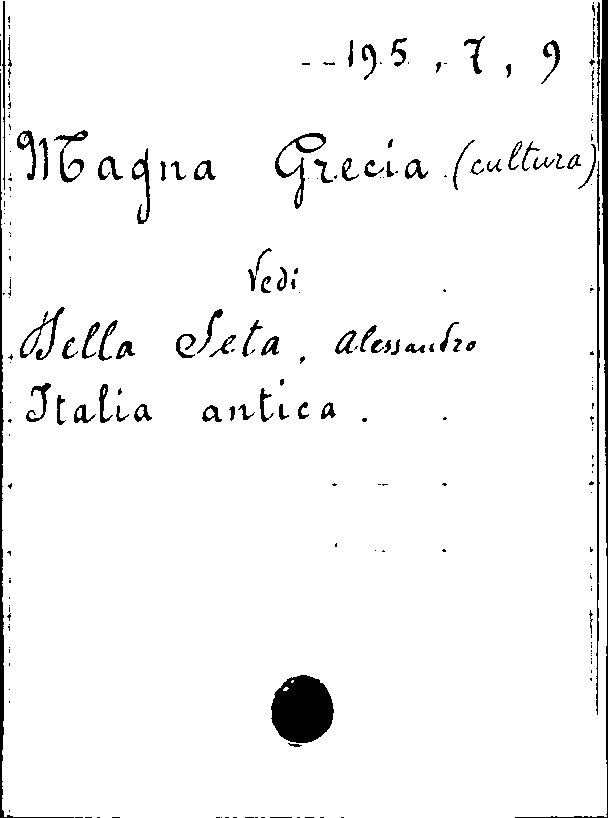 195, 7, 9
Magna Grecia (cultura)
Vedi
Della Seta, Alessandro
Italia antica.